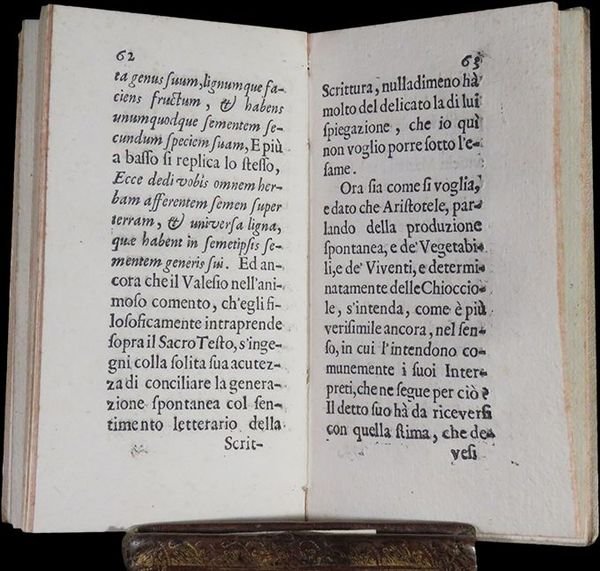 62
ta genus suum, lignumque fa-
ciens fructum, & habens
unumquodque sementem se-
cundum speciem suam, E più
a basso si replica lo stesso,
Ecce dedi vobis omnem her-
bam afferentem semen super
terram, & universa ligna,
quæ habent in semetipsis se-
mentem generis sui. Ed an-
cora che il Valesio nell'ani-
moso comento, ch'egli fi-
losoficamente intraprende
sopra il Sacro Testo, s'inge-
gni colla solita sua acutez-
za di conciliare la genera-
zione spontanea col sen-
timento letterario della
Scrit-
63
Scrittura, nulladimeno hà
molto del delicato la di lui
spiegazione, che io quì
non voglio porre sotto l'e-
same.
Ora sia come si voglia,
e dato che Aristotele, par-
lando della produzione
spontanea, e de' Vegetabi-
li, e de' Viventi, e determi-
natamente delle Chioccio-
le, s'intenda, come è più
verisimile ancora, nel sen-
so, in cui l'intendono co-
munemente i suoi Inter-
preti, che ne segue per ciò?
Il detto suo hà da riceversi
con quella stima, che de-
vesi